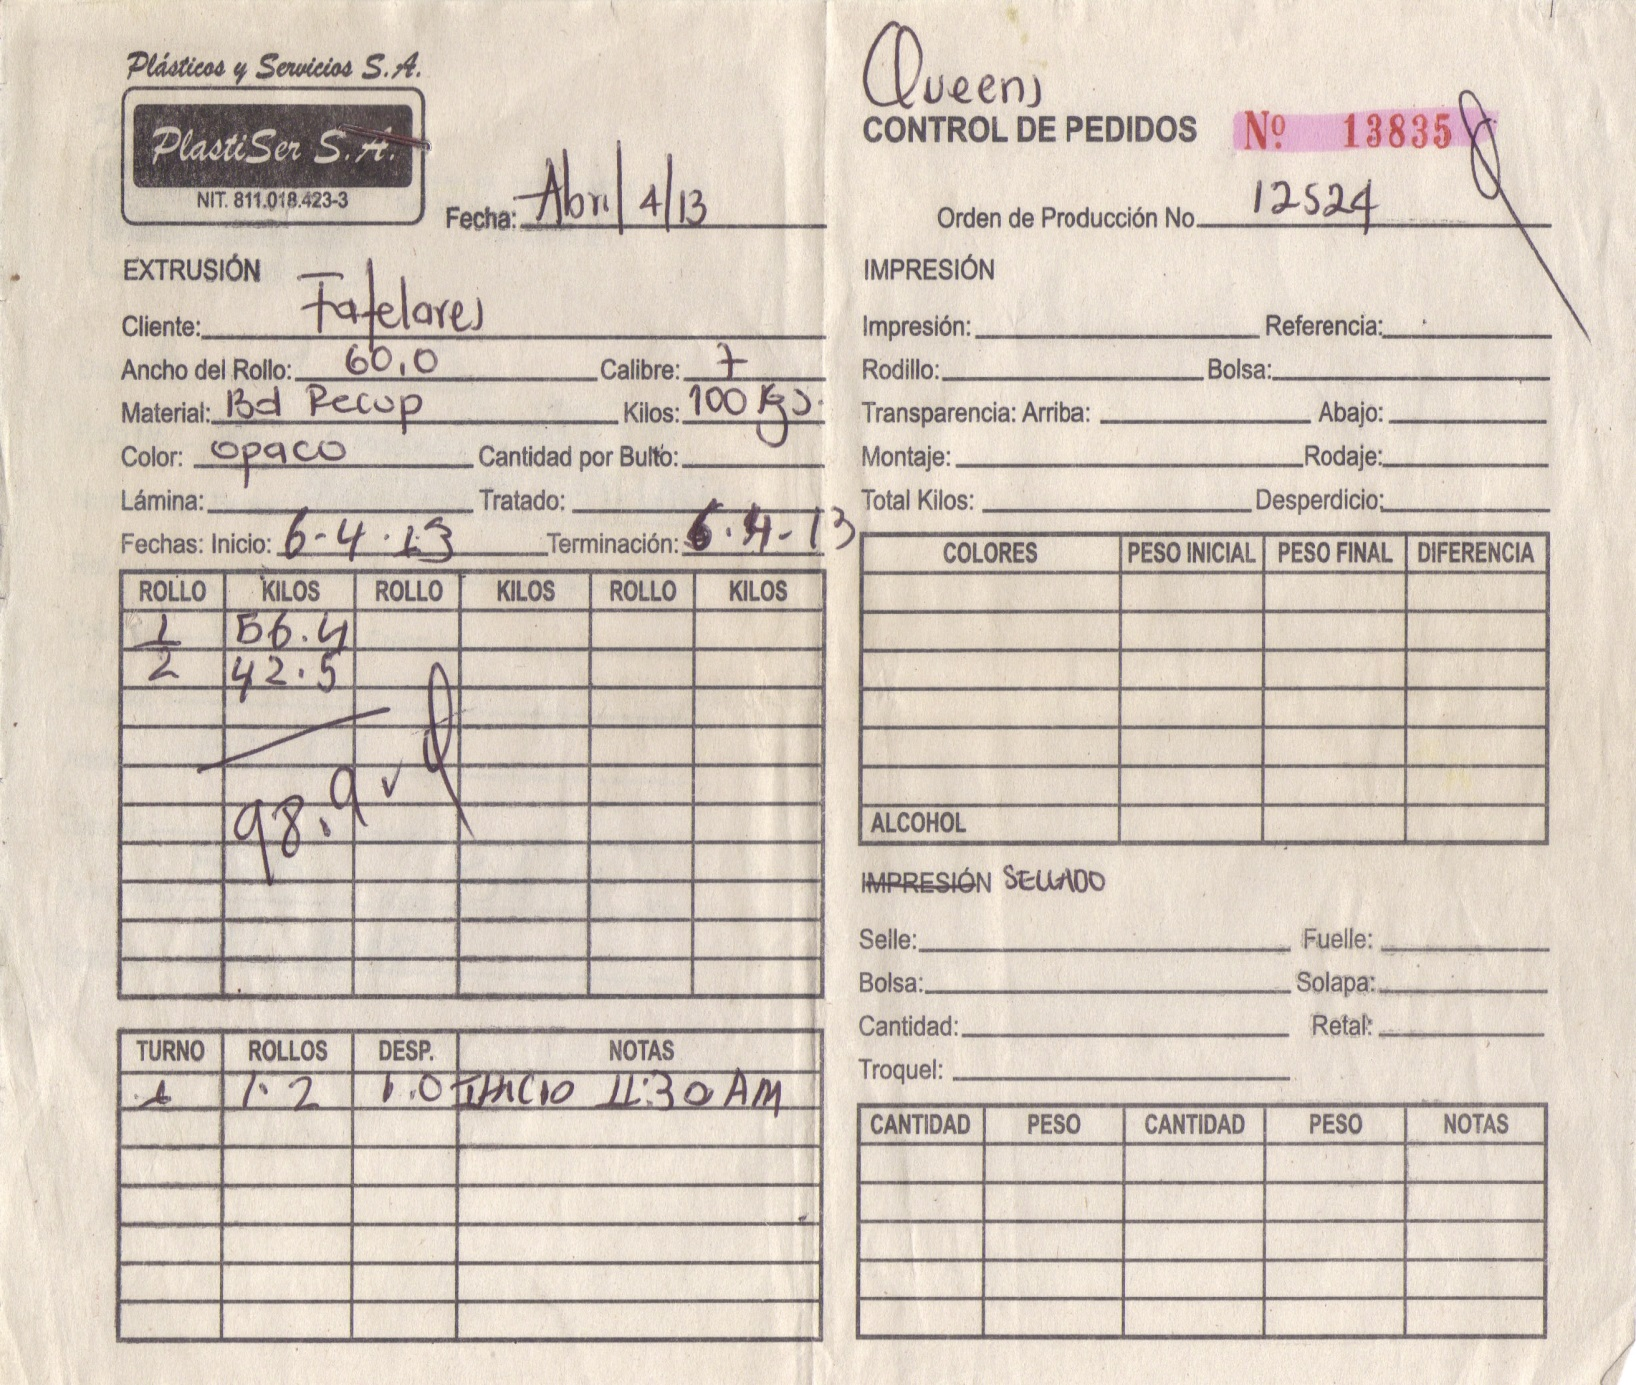 Plásticos y Servicios S.A.
PlastiSer S.A.
NIT. 811.018.423-3
Fecha: Abril/4/13
EXTRUSIÓN
Cliente: Fatelares
Ancho del Rollo: 60.0 Calibre: 7
Material: Bd Recup Kilos: 100 Kgs.
Color: opaco Cantidad por Bulto:
Lámina: Tratado:
Fechas: Inicio: 6-4.13 Terminación: 6.4-13
ROLLO KILOS ROLLO KILOS ROLLO KILOS
1 56.4
2 42.5
98.9 ✓
TURNO ROLLOS DESP. NOTAS
1 1.2 1.0 INICIO 11:30 AM
Queens
CONTROL DE PEDIDOS Nº 13835
Orden de Producción No. 12524
IMPRESIÓN
Impresión: Referencia:
Rodillo: Bolsa:
Transparencia: Arriba: Abajo:
Montaje: Rodaje:
Total Kilos: Desperdicio:
COLORES PESO INICIAL PESO FINAL DIFERENCIA
ALCOHOL
IMPRESIÓN SELLADO
Selle: Fuelle:
Bolsa: Solapa:
Cantidad: Retal:
Troquel:
CANTIDAD PESO CANTIDAD PESO NOTAS